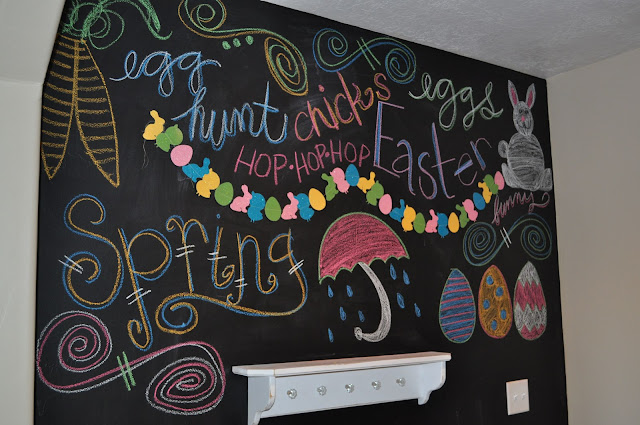 egg
hunt
chicks
eggs
HOP·HOP·HOP
Easter
bunny
Spring